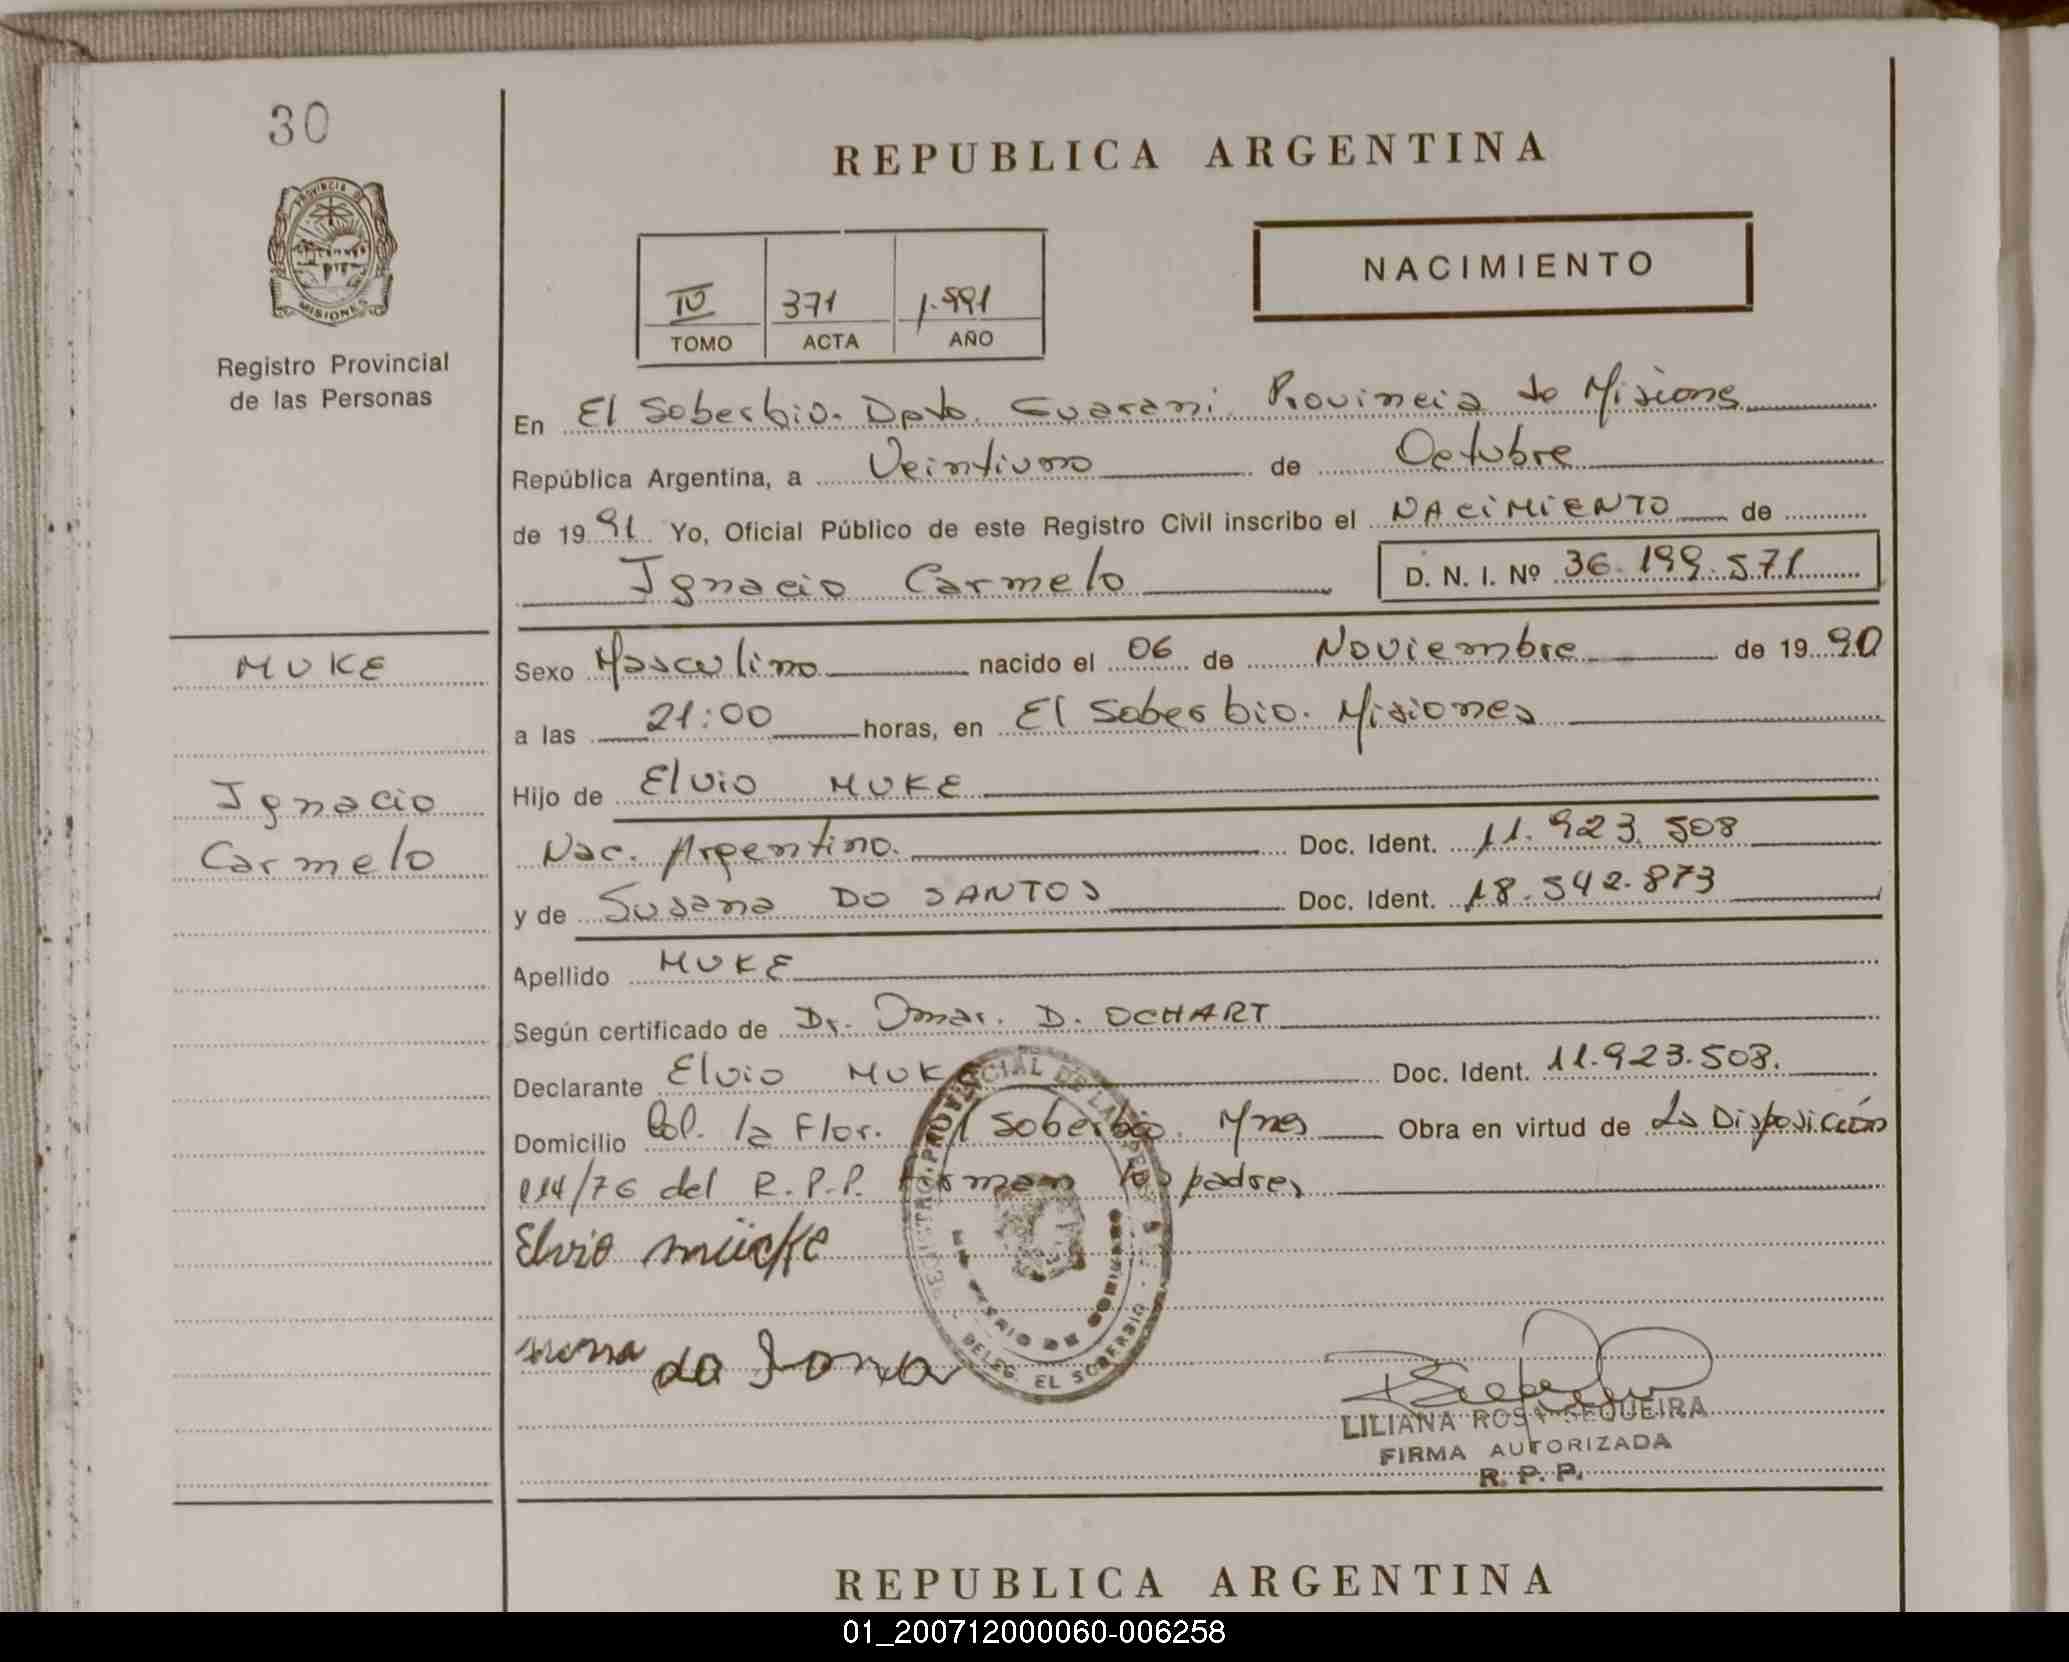 30
PROVINCIA DE
MISIONES
Registro Provincial
de las Personas
REPUBLICA ARGENTINA
IV 371 1.991
TOMO ACTA AÑO
NACIMIENTO
En El Soberbio. Dpto. Guarani. Provincia de Misiones
República Argentina, a Veintiuno de Octubre
de 1991 Yo, Oficial Público de este Registro Civil inscribo el NACIMIENTO de
Ignacio Carmelo D. N. I. Nº 36.199.571
MUKE
Ignacio
Carmelo
Sexo Masculino nacido el 06 de Noviembre de 1990
a las 21:00 horas, en El Soberbio. Misiones
Hijo de Elvio MUKE
Nac. Argentino. Doc. Ident. 11.923.508
y de Susana DO SANTOS Doc. Ident. 18.542.873
Apellido MUKE
Según certificado de Dr. Omar. D. OCHART
Declarante Elvio MUK Doc. Ident. 11.923.508.
Domicilio Col. la Flor. El Soberbio. Mnes Obra en virtud de La Disposición
014/76 del R.P.P. Firman los padres
Elvio mücke
do
REGISTRO PROVINCIAL DE LAS PERSONAS
DELEG. EL SOBERBIO
LILIANA ROSA SEQUEIRA
FIRMA AUTORIZADA
R. P. P.
REPUBLICA ARGENTINA
01_200712000060-006258